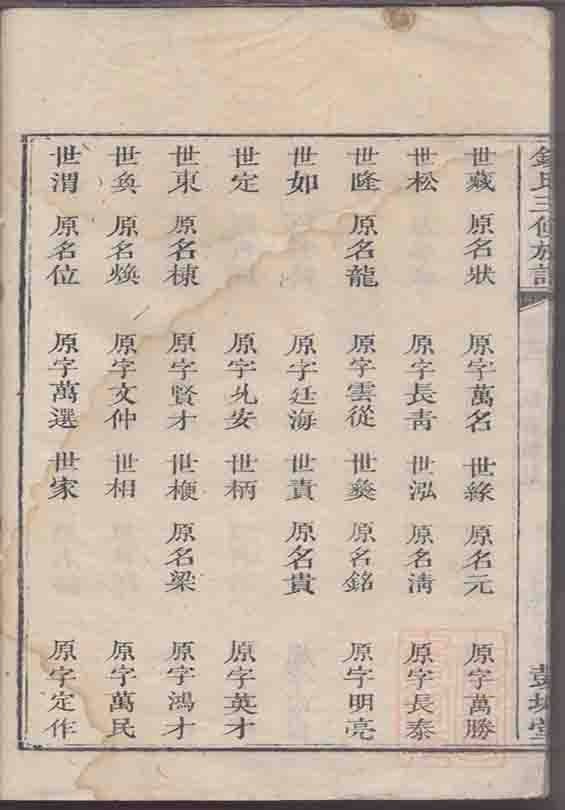 世藏 原名狀 原字萬名 世緣 原名元 原字萬勝
世松 原字長青 世泓 原名淸 原字長泰
世隆 原名龍 原字雲從 世 原名銘 原字明亮
世如 原字廷海 世責 原名貴
世定 原字 安 世柄 原字英才
世東 原名棟 原字賢才 世 原名梁 原字鴻才
世奐 原名煥 原字文仲 世相 原字萬民
世渭 原名位 原字萬選 世家 原字定作
氏三修族譜
堂